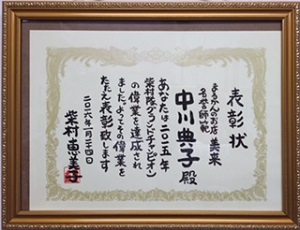 表彰状
まるかんのお店 美楽
名誉師範
中川典子殿
あなたは二〇二五年
柴村隊グランドチャンピオン
の偉業を達成され
ました。よってその偉業を
たたえ表彰致します
二〇二六年一月二十四日
柴村恵美子